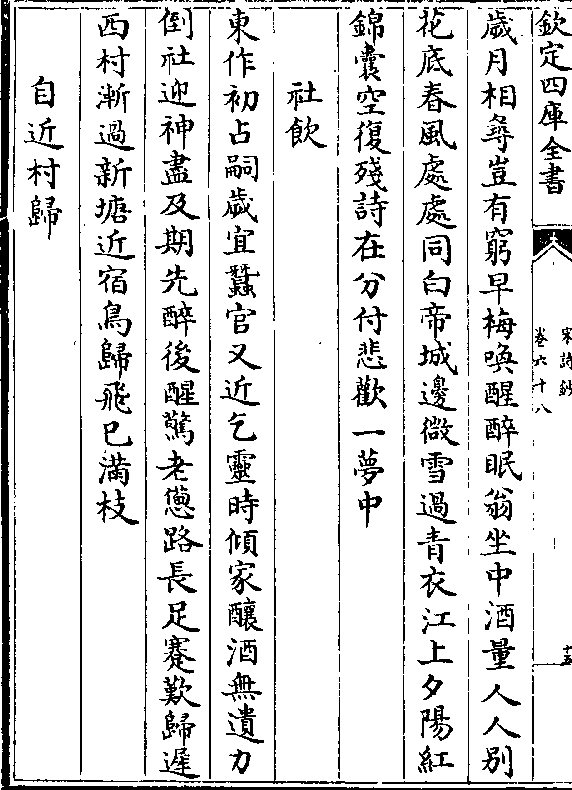 欽定四庫全書
宋詩鈔
卷六十八
十五
歲月相尋豈有窮早梅喚醒醉眠翁坐中酒量人人別
花底春風處處同白帝城邊微雪過青衣江上夕陽紅
錦囊空復殘詩在分付悲歡一夢中
社飲
東作初占嗣歲宜蠶官又近乞靈時傾家釀酒無遺力
倒社迎神盡及期先醉後醒驚老憊路長足蹇歎歸遲
西村漸過新塘近宿鳥歸飛已滿枝
自近村歸